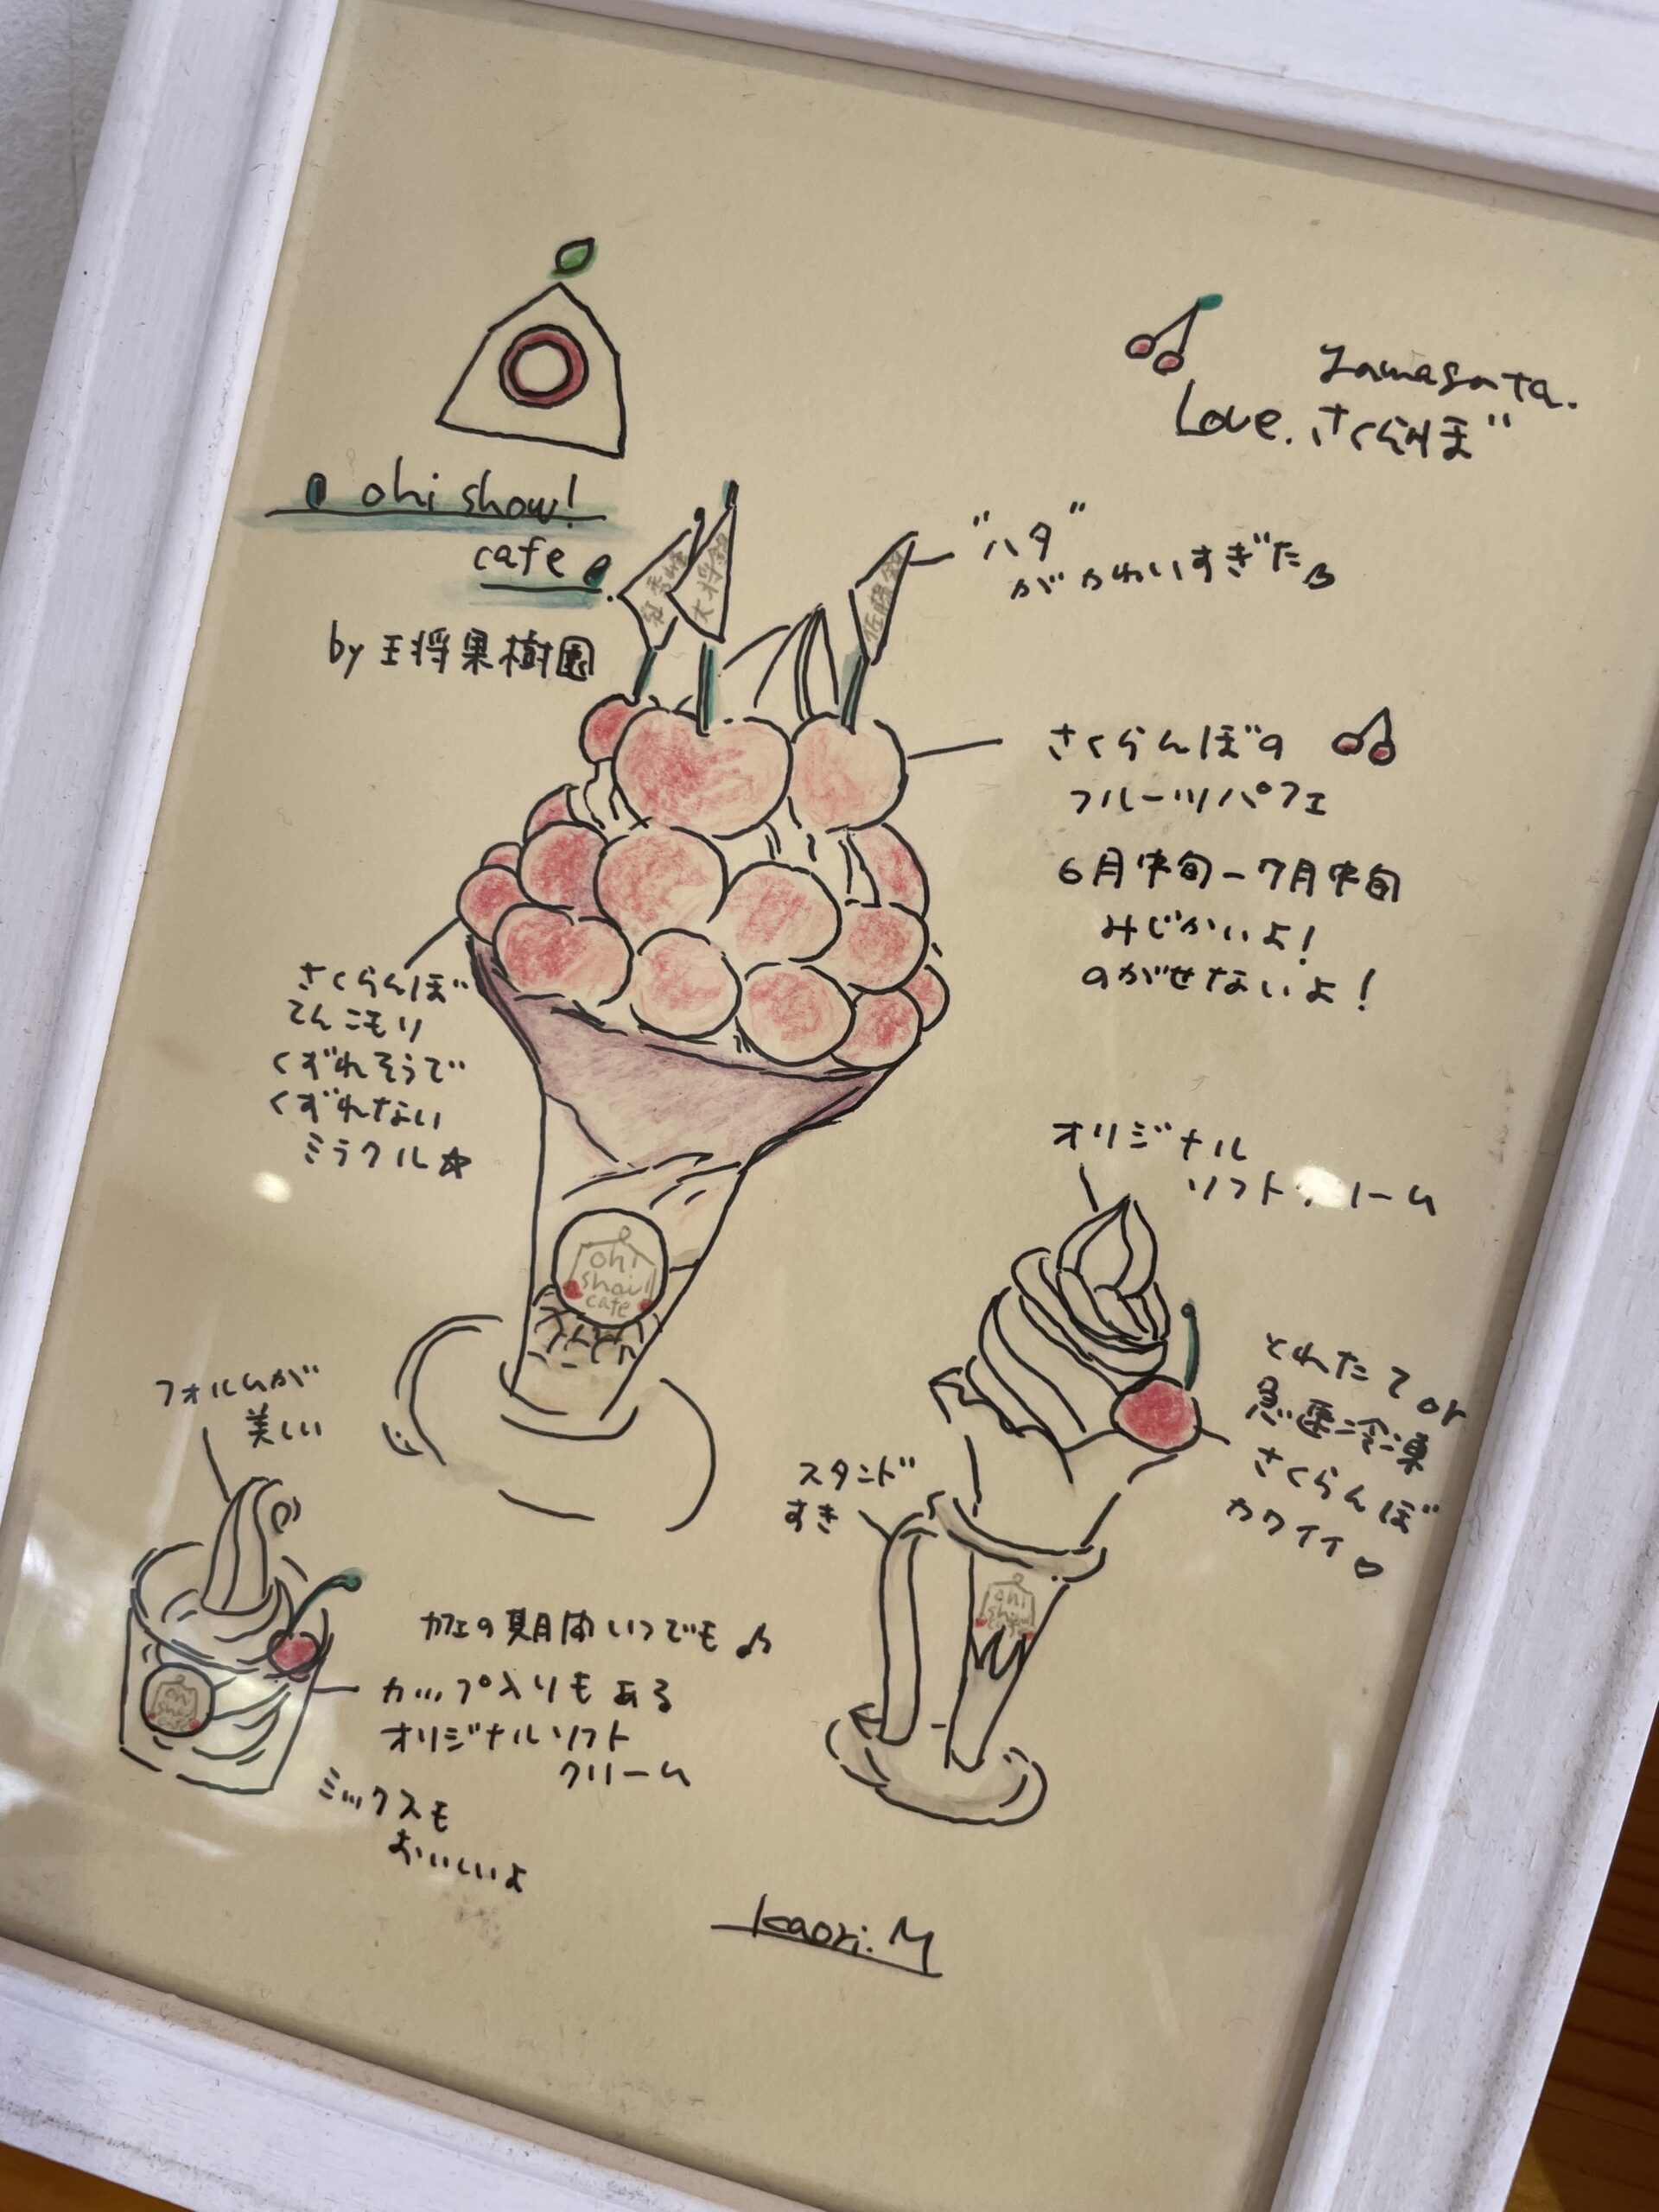 yamagata.
Love. さくらんぼ
ohi show!
cafe
by 王将果樹園
紅秀峰
大将錦
佐藤錦
"ハタ"
がかわいすぎた♪
さくらんぼの
フルーツパフェ
6月中旬-7月中旬
みじかいよ!
のがせないよ!
さくらんぼ
てんこモリ
くずれそうで
くずれない
ミラクル☆
ohi
show!
cafe
オリジナル
ソフト リーム
とれたて or
急速冷凍
さくらんぼ
カワイイ♡
スタンド
すき
ohi
show
フォルムが
美しい
カフェの期間いつでも♪
カップ入りもある
オリジナルソフト
クリーム
ミックスも
おいしいよ
Kaori.M